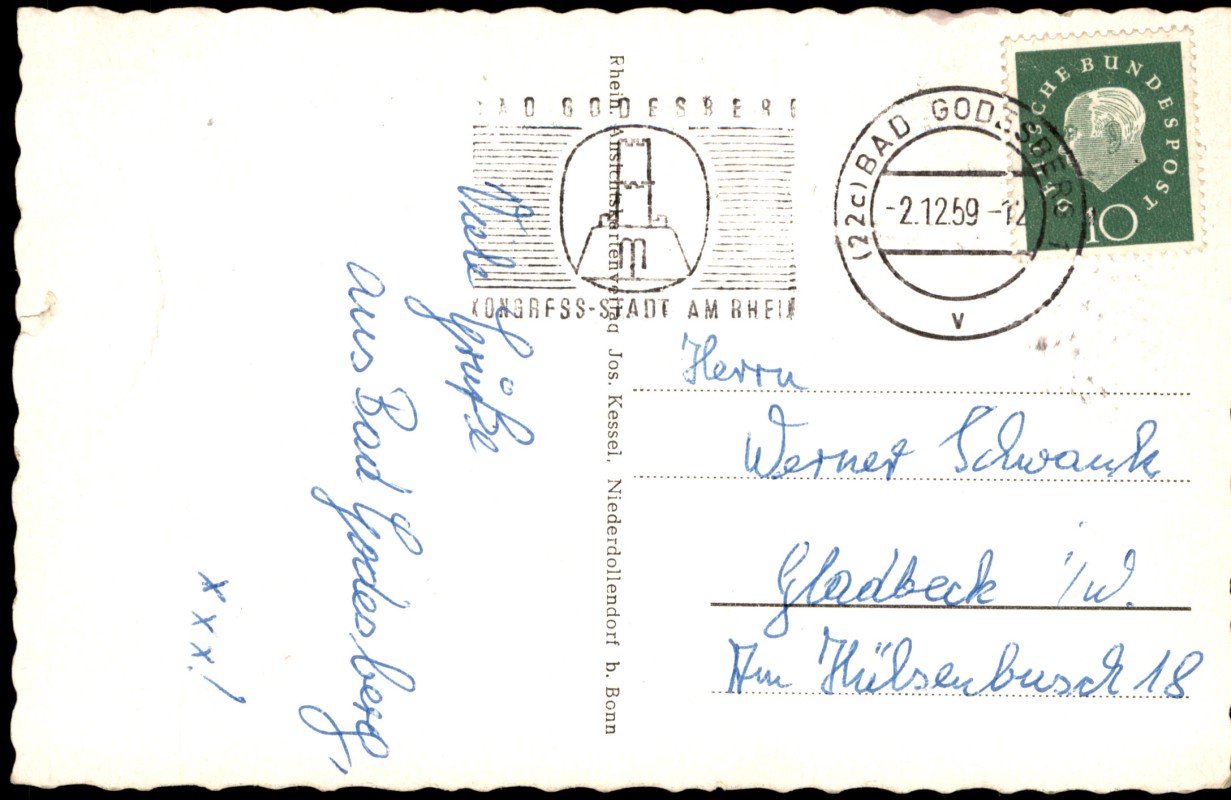 BAD GODESBERG
KONGRESS-STADT AM RHEIN
(22c) BAD GODESBERG
-2.12.59-12
v
DEUTSCHE BUNDESPOST
10
Viele
Grüße
aus Bad Godesberg,
xxx!
Rhein. Ansichtskartenverlag Jos. Kessel, Niederdollendorf b. Bonn
Herrn
Werner Schwank
Gladbeck i/W.
Am Hülsenbusch 18